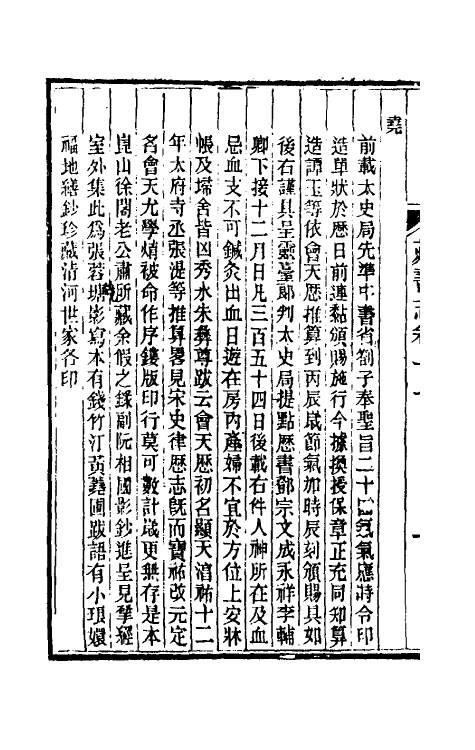 堯
前載太史局先準中書省劄子奉聖旨二十四氣氣應時令印
造單狀於曆日前連黏頒賜施行今據換授保章正充同知算
造譚玉等依會天歷推算到丙辰歲節氣加時辰刻頒賜具如
後右謹具呈靈臺郎判太史局提點歷書鄧宗文成永祥李輔
卿下接十二月日凡三百五十四日後載右件人神所在及血
忌血支不可鍼灸出血日遊在房內產婦不宜於方位上安牀
帳及埽舍皆凶秀水朱彝尊跋云會天歷初名顯天湻祐十二
年太府寺丞張湜等推算畧見宋史律歷志旣而寶祐改元定
名會天尤學焴被命作序鏤版印行莫可數計歲更無存是本
崑山徐閣老公肅所藏余假之錄副阮相國影鈔進呈見揅經
室外集此爲張蓉塘影寫本有錢竹汀黃蕘圃跋語有小瑯嬛
福地繕鈔珍藏淸河世家各印